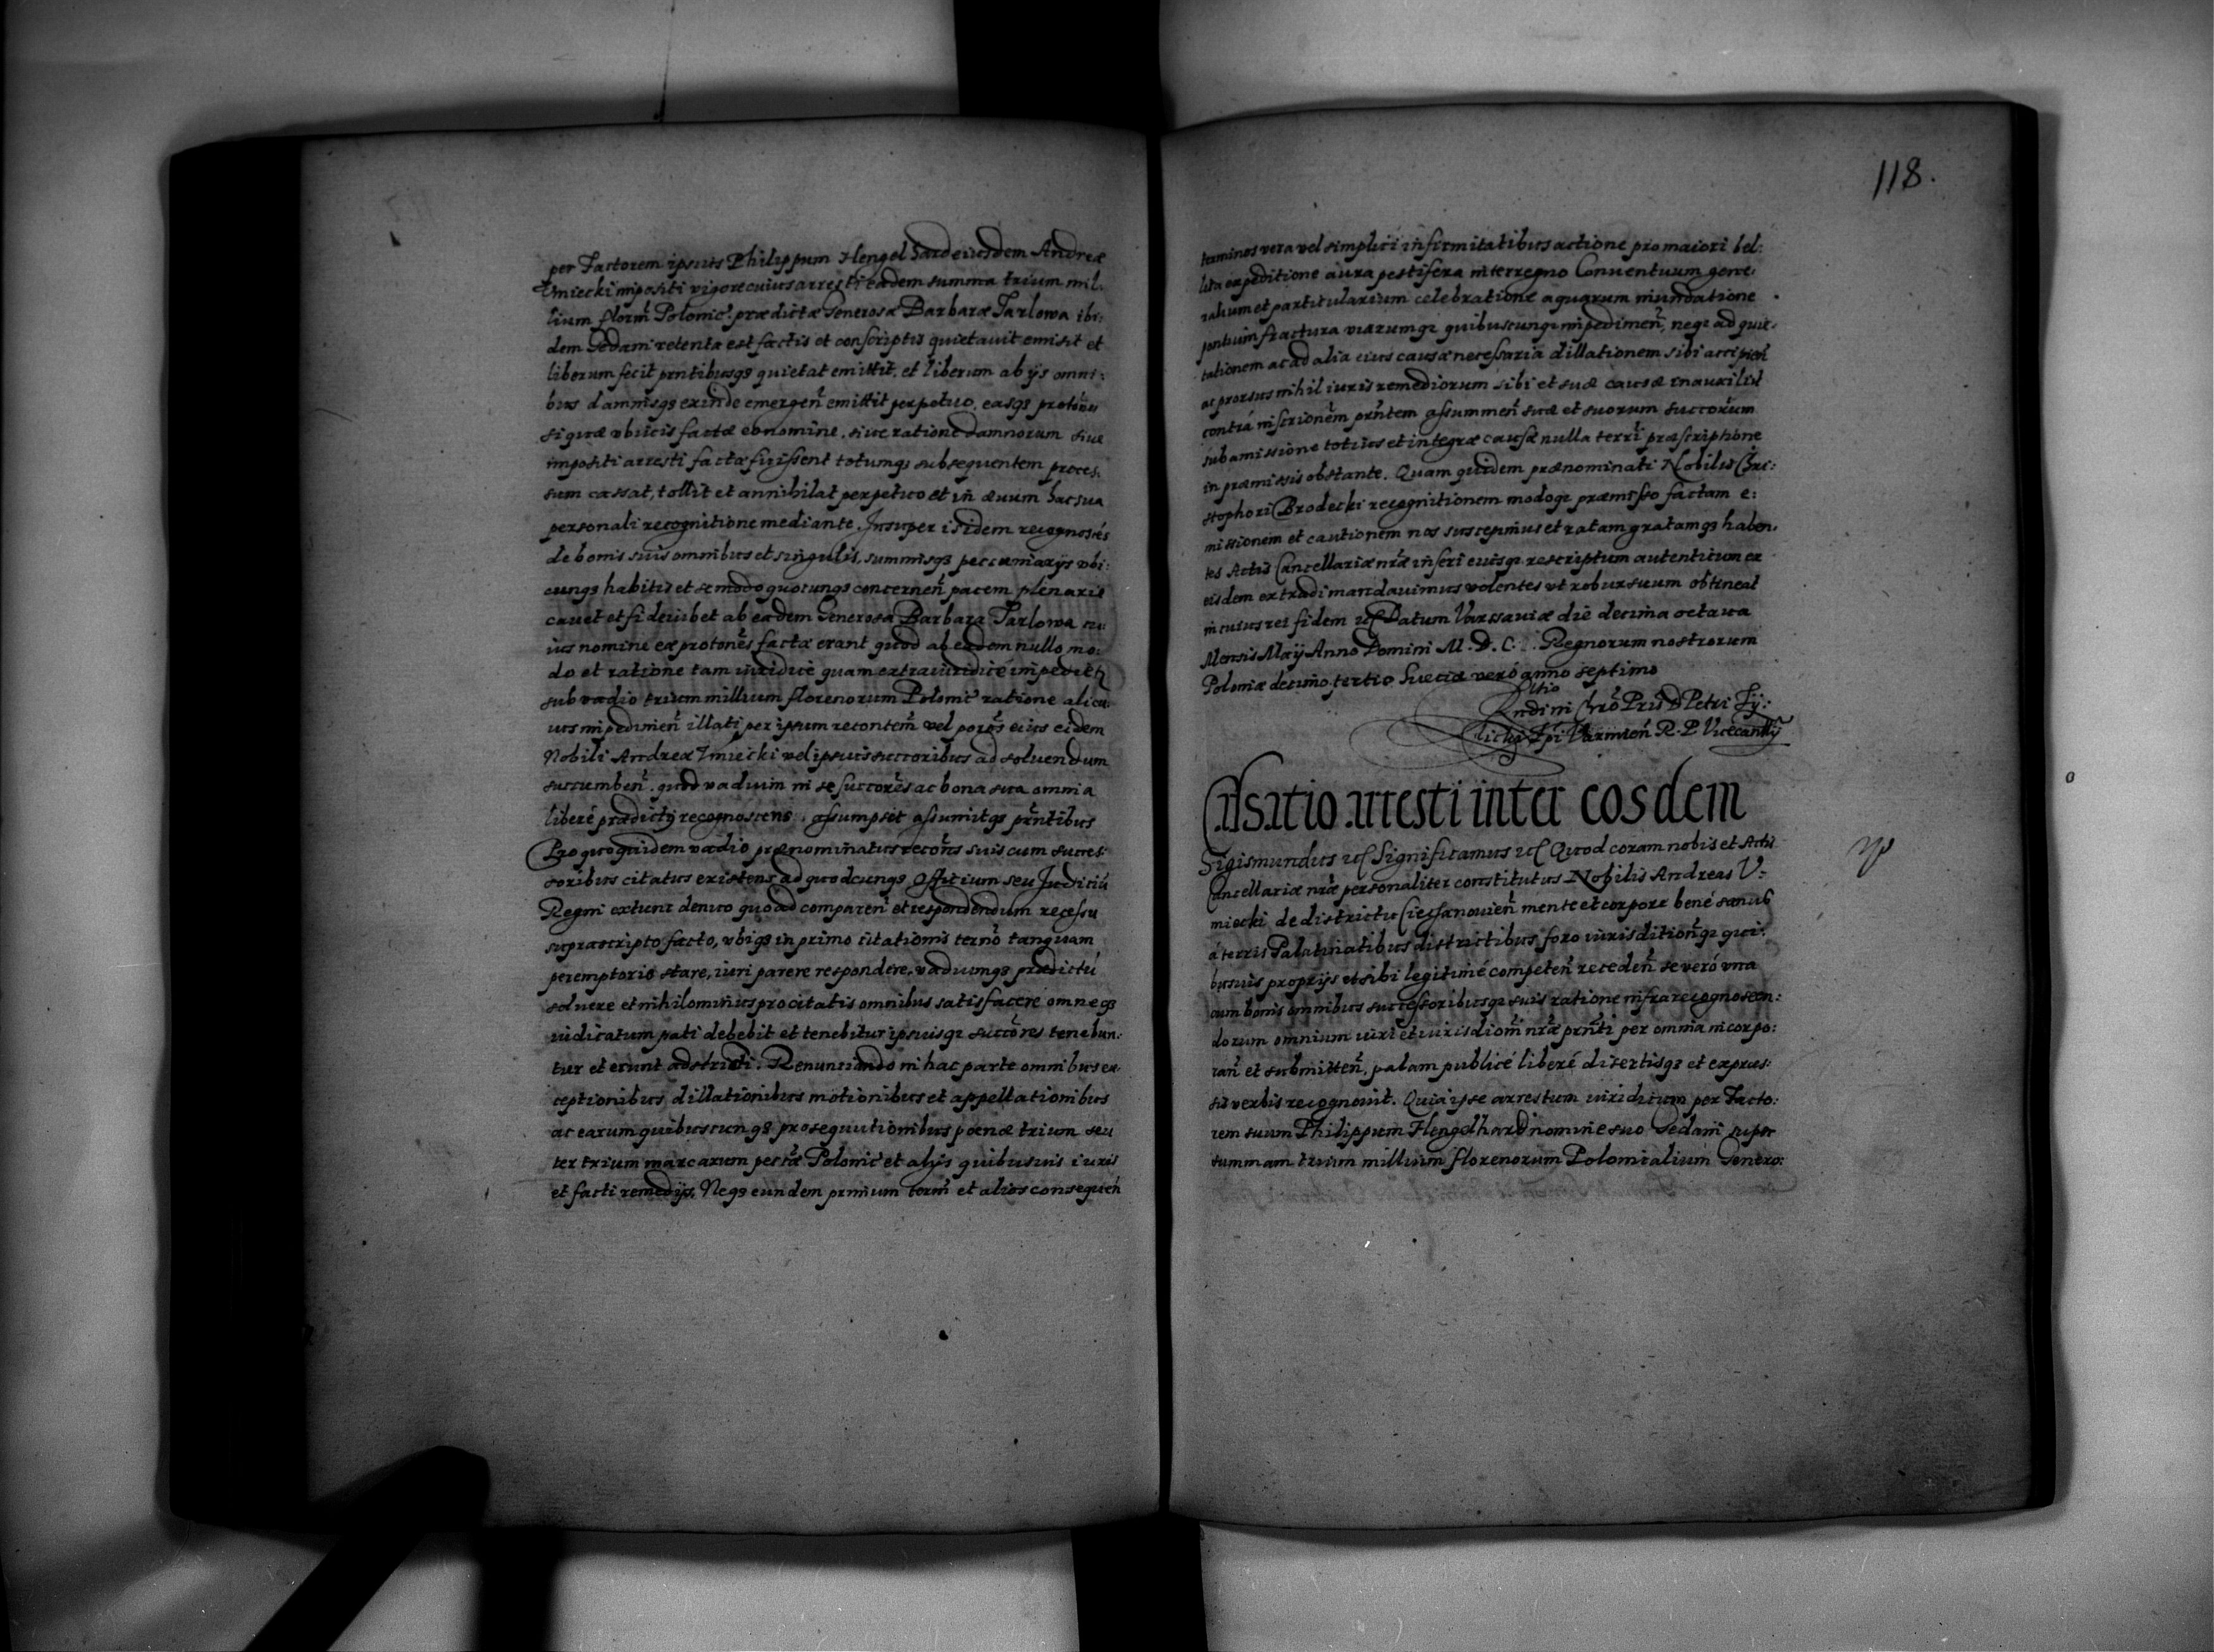 per Factorem ipsius Philippum Hengel Hard eiusdem Andreæ
Vmiecki impositi vigore cuius arresti eadem summa trium mil:
lium floren̄ Polonic̄ prædictæ Generosæ Barbaræ Tarlowa ibi:
dem Gedani retenta est factis et conscriptis quietauit emisit et
liberum fecit prn̄tibusqȝ quietat emittit, et liberum ab ijs omni:
bus damnisqȝ exinde emergen̄ emittit perpetuo, easqȝ proton̄es
si quæ vbiuis factæ eo nomine, siue ratione damnorum siue
impositi arresti factæ fuissent totumqȝ subsequentem proces:
sum cassat, tollit et annihilat perpetuo et in æuum hac sua
personali recognitione mediante. Insuper isidem recognoscēs
de bonis suis omnibus et singulis, summisqȝ peccuniarijs vbi:
cunqȝ habitis et se modo quocunqȝ concernen̄ pacem plenariē
cauet et fideiubet ab eadem Generosa Barbara Tarlowa cu:
ius nomine eæ proton̄es factæ erant quod ab eadem nullo mo:
do et ratione tam iuridicè quam extraiuridicè impediet
sub vadio trium millium florenorum Polonic̄ ratione alicu:
ius impedimen̄ illati per ipsum recon̄tem vel eius eidem
Nobili Andreæ Vmiecki vel ipsius succoribus ad soluendum
succumben̄. quod vadium in se succorēs ac bona sua omnia
liberè prædictus recognoscens assumpsit assumitqȝ prn̄tibus
Pro quo quidem vadio prænominatus recon̄s suis cum succes:
soribus citatus existens ad quodcunqȝ Officium seu Iuditiū
Regni extunc denuo quoad comparen̄ et respondendum recessu
suprascripto facto, vbiqȝ in primo citationis termō tanquam
peremptorio stare, iuri parere respondere, vadiumqȝ prædictū
soluere et nihilominus pro citatis omnibus satisfacere omneqȝ
iudicatum pati debebit et tenebitur ipsiusqȝ succorēs tenebun:
tur et erunt adstricti. Renunciando in hac parte omnibus ex:
ceptionibus dillationibus motionibus et appellationibus
ac earum quibuscunqȝ prosequutionibus poenæ trium seu
ter trium marcarum pecūæ Polonic̄ et alijs quibusuis iuris
et facti remedijs, Neqȝ eundem primum term̄ et alios consequen̄
118.
terminos vera vel simplici infirmitatibus actione pro maiori bel:
lica expeditione aura pestifera interregno Conuentuum gene:
ralium et particularium celebratione aquarum inundatione
pontium fractura viarumqȝ quibuscunqȝ impedimen̄, neqȝ ad quie:
tationem ac ad alia eius causæ necessaria dillationem sibi accipien̄
ac prorsus nihil iuris remediorum sibi et suæ causæ in auxiliū
contrà inscrionēm prn̄tem assummen̄ suæ et suorum succorūm
sub amissione totius et integræ causæ nulla terrī præscriptione
in præmissis obstante. Quam quidem prænominati Nobilis Chri:
stophori Brodecki recognitionem modoqȝ præmisso factam e:
missionem et cautionem nos suscepimus et ratam gratamqȝ haben:
tes Actis Cancellariæ nr̄æ inseri eiusqȝ rescriptum autenticum ex
eisdem extradi mandauimus volentes vt robur suum obtineat
in cuius rei fidem etc Datum Varssauiæ die decima octaua
Mensis Maij Anno Domini M. D. C. Regnorum nostrorum
Poloniæ decimo tertio Sueciæ verò anno septimo
Rltio
Rndi in Chrō Pris D Petri Tij:
licki Epī Varmien̄ R. P. Vicecanrij
Cassatio arresti inter eosdem
Sigismundus etc Significamus etc Quod coram nobis et Actis
Cancellariæ nr̄æ personaliter constitutus Nobilis Andreas V:
miecki de districtu Ciechanouien̄ mente et corpore benè sanus
à terris Palatinatibus districtibus foro iurisdition̄qȝ qui:
busuis proprijs et sibi legitimè competen̄ receden̄ se verò vna
cum bonis omnibus successoribusqȝ suis ratione infra recognoscen:
dorum omnium iuri et iurisdiom̄ nr̄æ prn̄ti per omnia incorpo:
ran̄ et submitten̄, palam publicè liberè disertisqȝ et expres:
sis verbis recognouit. Quia ipse arrestum iuridicum per Facto:
rem suum Philippum Hengelhard nomine suo Gedani super
summam trium millium florenorum Polonicalium Genero: